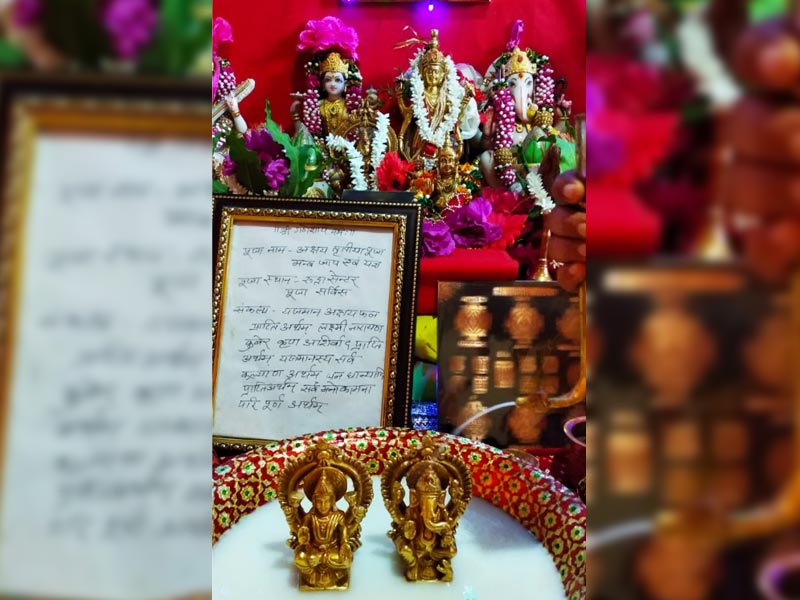 ॥श्री गणेशाय नमः॥
पूजा नाम - अक्षय तृतीया पूजा
मन्त्र जाप एवं यज्ञ
पूजा स्थान - रुद्रा सेन्टर्
पूजा सर्विस
संकल्प - यजमान अक्षय फल
प्राप्ति अर्थम् लक्ष्मी नारायण
कुबेर कृपा आशिर्वाद प्राप्ति
अर्थम् यजमानस्य सर्व
कल्याण अर्थम् धन धान्यादि
प्राप्तिअर्थम् सर्व मनोकामना
परि पूर्ण अर्थम्